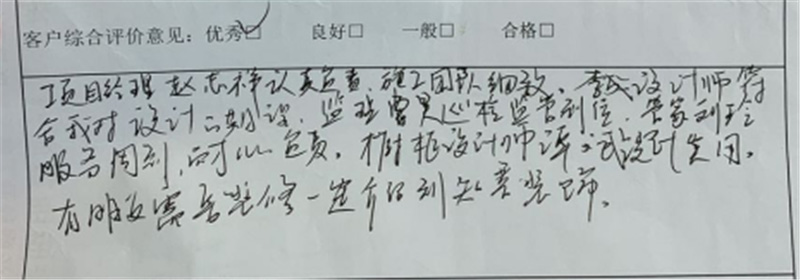 客户综合评价意见：优秀□ 良好□ 一般□ 合格□
项目经理赵志祥认真负责，施工团队细致。李斌设计师符
合我对设计的期望，监理曹昊巡检监督到位，管家刘
服务周到，耐心负责。橱柜设计师谭 设计实用。
有朋友需要装修一定介绍到知音装饰。